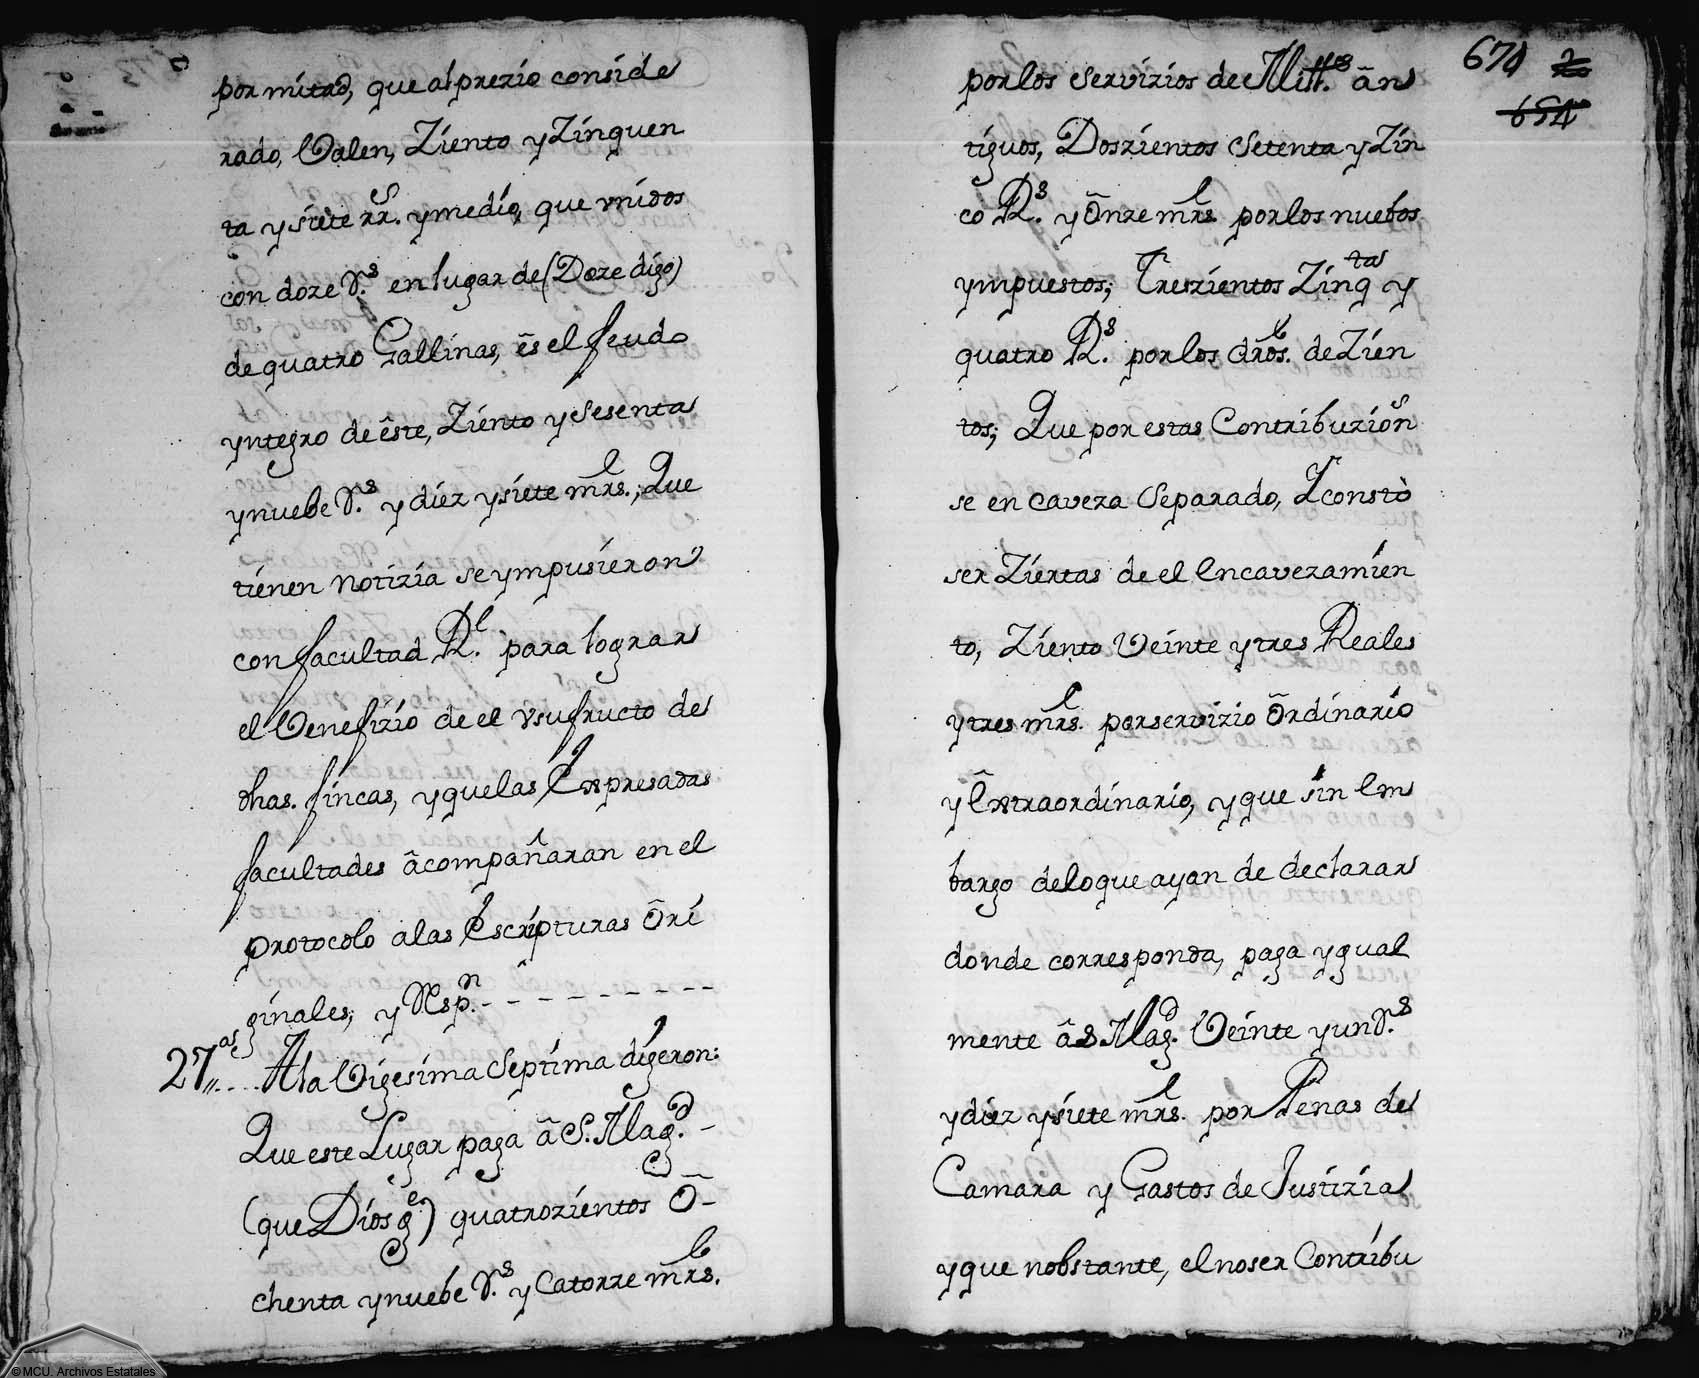 por mitad, que al prezio conside
rado, Valen, Ziento y Zinquen
ta y siete rr.s y medio, que vnidos
con doze r.s en lugar de (Doze digo)
de quatro Gallinas, ês el feudo
yntegro de êste, Ziento y Sesenta
y nuebe r.s y diez y siete mrs.; Que
tienen notizia se ympusieron
con facultad R.l para lograr
el Venefizio de el vsufructo de
dhas. fincas, y que las Expresadas
facultades âcompañaran en el
protocolo a las Escripturas Ôri
ginales; y Resp.n - - - - - - - - -
27.as .... A la Vigesima Septima digeron:
Que este Lugar paga â S. Mag.d -
(que Dios g.e) quatrozientos Ô-
chenta y nuebe r.s y Catorze mrs.
674 2
654
por los Servizios de Mill.s ân
tiguos, Doszientos Setenta y Zin
co R.s y Ônze mrs. por los nuebos
ympuestos; Treszientos Zinq.ta y
quatro R.s por los dros. de Zien
tos; Que por estas Contribuzión.s
se en caveza Separado, Y constò
ser Ziertas de el Encavezamien
to, Ziento Veinte y tres Reales
y tres mrs. por servizio Ôrdinario
y Êxtraordinario, y que sin Em
bargo de lo que ayan de declarar
donde corresponda, paga ygual
mente â S. Mag.d Veinte y un r.s
y diez y siete mrs. por Penas de
Camara y Gastos de Justizia
y que nobstante, el no ser Contribu
© MCU. Archivos Estatales